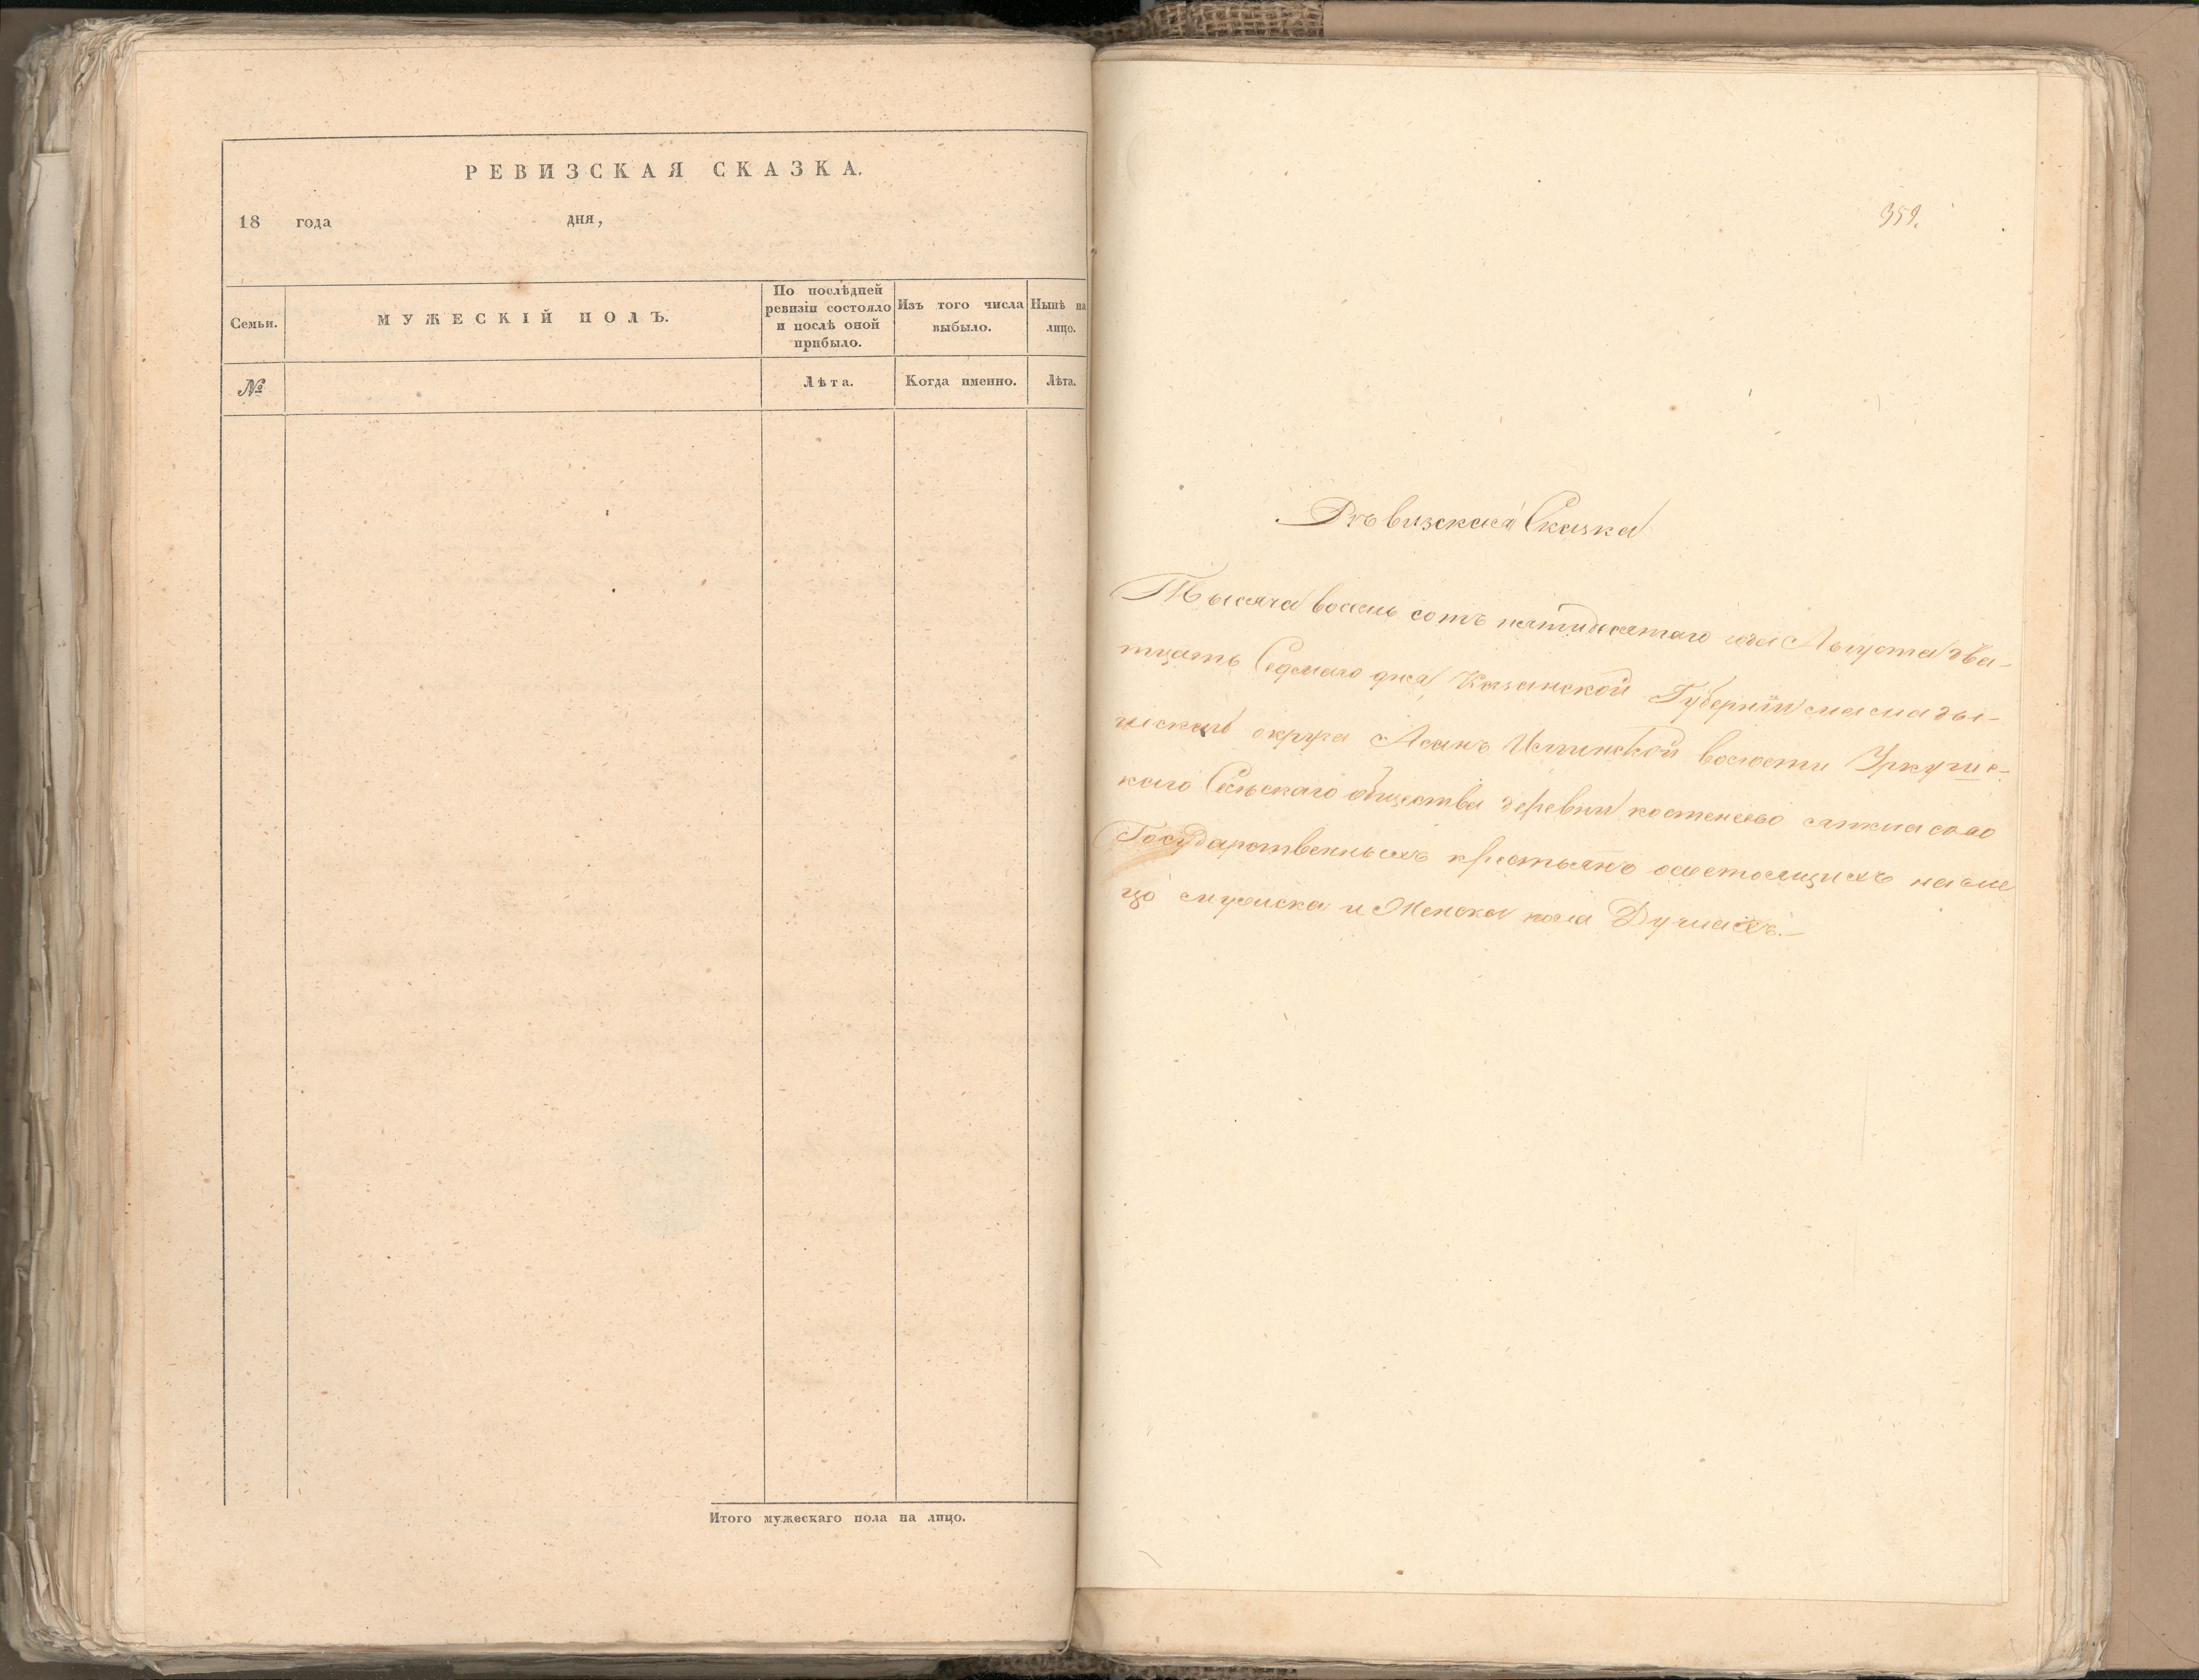 РЕВИЗСКАЯ СКАЗКА.
18 года дня,
Семьи.
МУЖЕСКІЙ ПОЛЪ.
По послѣдней
ревизіи состояло
и послѣ оной
прибыло.
Изъ того числа
выбыло.
Нынѣ на
лицо.
№
Лѣта.
Когда именно.
Лѣта.
Итого мужескаго пола на лицо.
359.
Ревизская Сказка
Тысяча восемь сотъ пятидесятаго года Августа два-
тцать Седмаго дня Казанской Губерніи мамады-
шскаго округа Асанъ Илгинской волости
каго Сельскаго общества деревни
Государственныхъ крестьянъ о состоящихъ на ли
цо мужска и Женска пола Душахъ.—